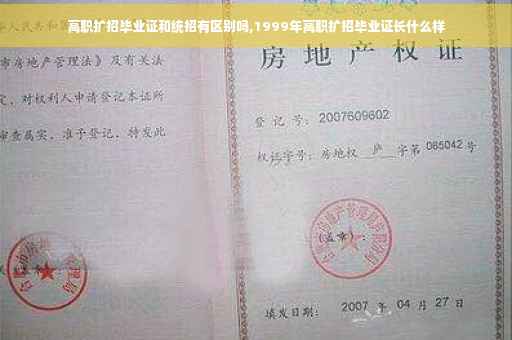 高职扩招毕业证和统招有区别吗,1999年高职扩招毕业证长什么样
人民共和国
市房地产管理法》及有关法
定，对权利人申请登记本证所
审查属实，准予登记，特发此
房地产权证
登记号：2007609602
权证字号：房地权 庐 字第 065042 号
(盖章)：
填发日期： 2007 年 04 月 27 日